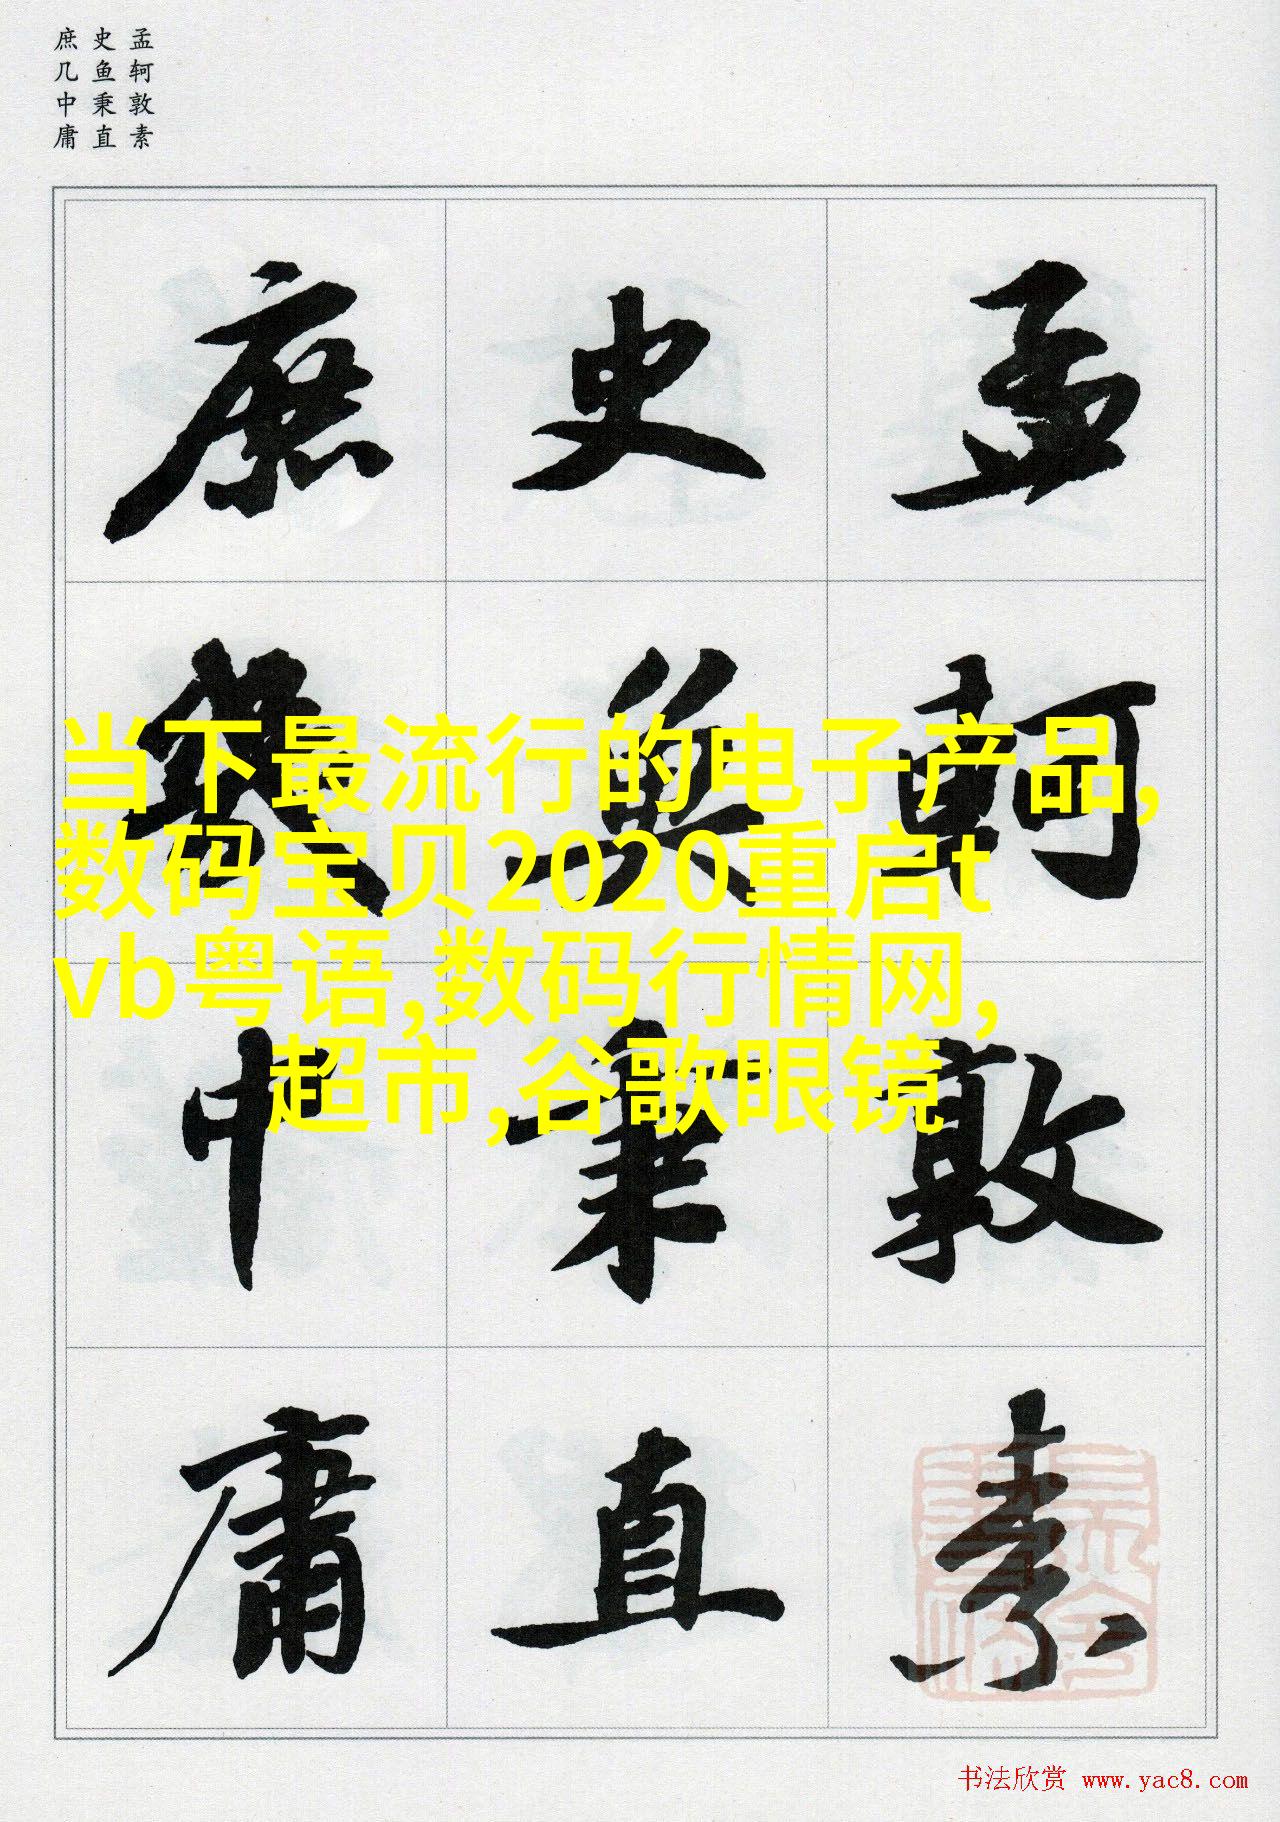 孟轲敦素
史鱼秉直
庶几中庸
孟軻敦素
史魚秉直
庶幾中庸
当下最流行的电子产品,
数码宝贝2020重启t
vb粤语,数码行情网,
超市,谷歌眼镜
书法欣赏 www.yac8.com